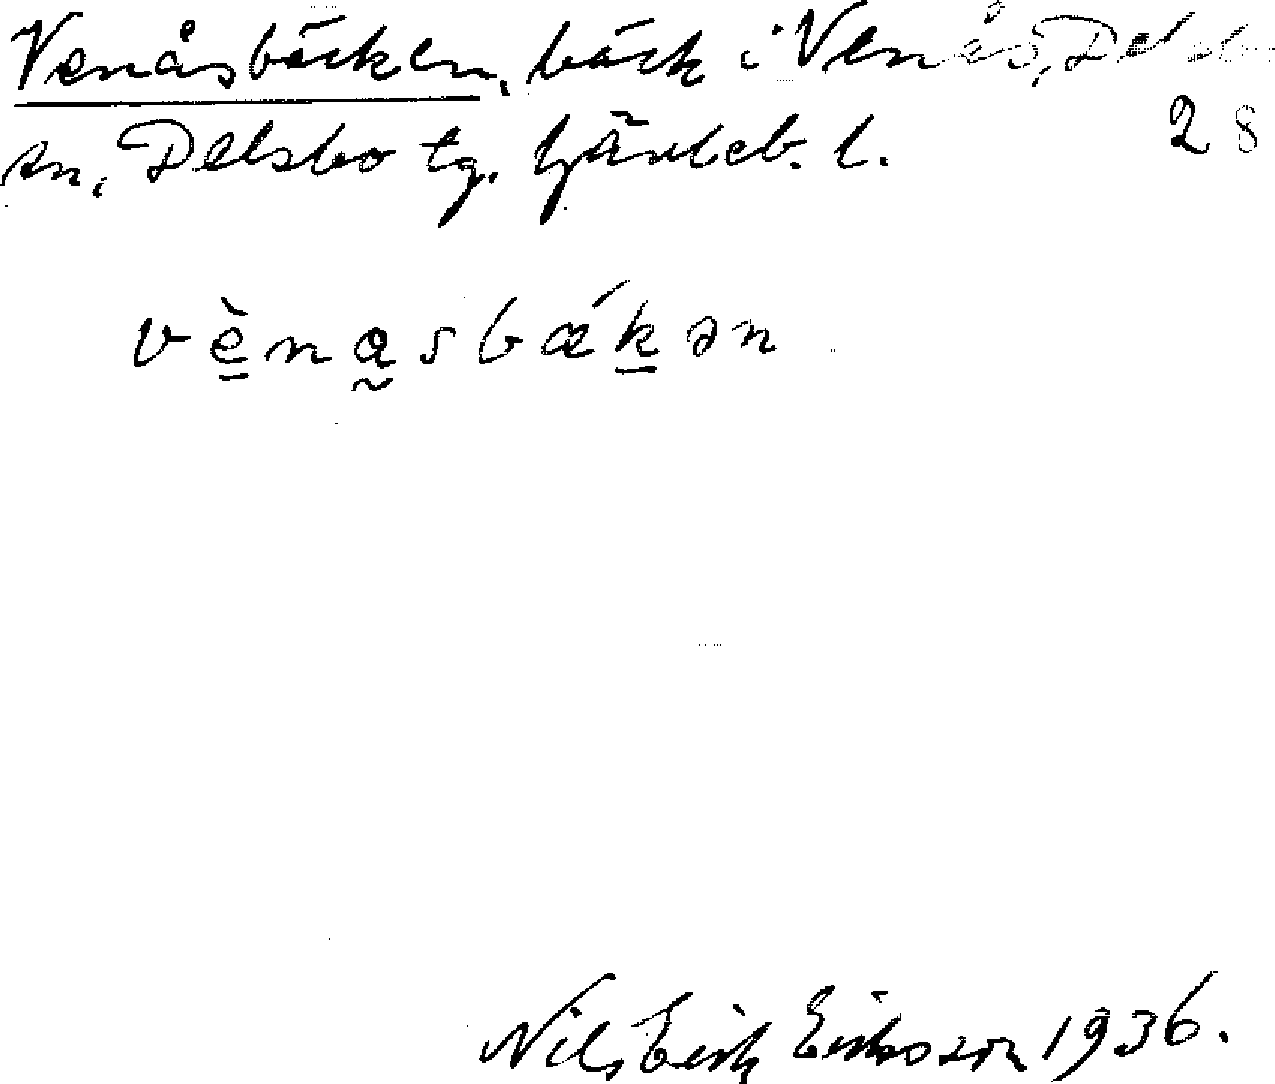 Venåsbäcken, bäck i Venås, Delsbo
28
sn, Delsbo tg. Gävleb. l.
vènasbækən
Nils Erik Eriksson 1936.